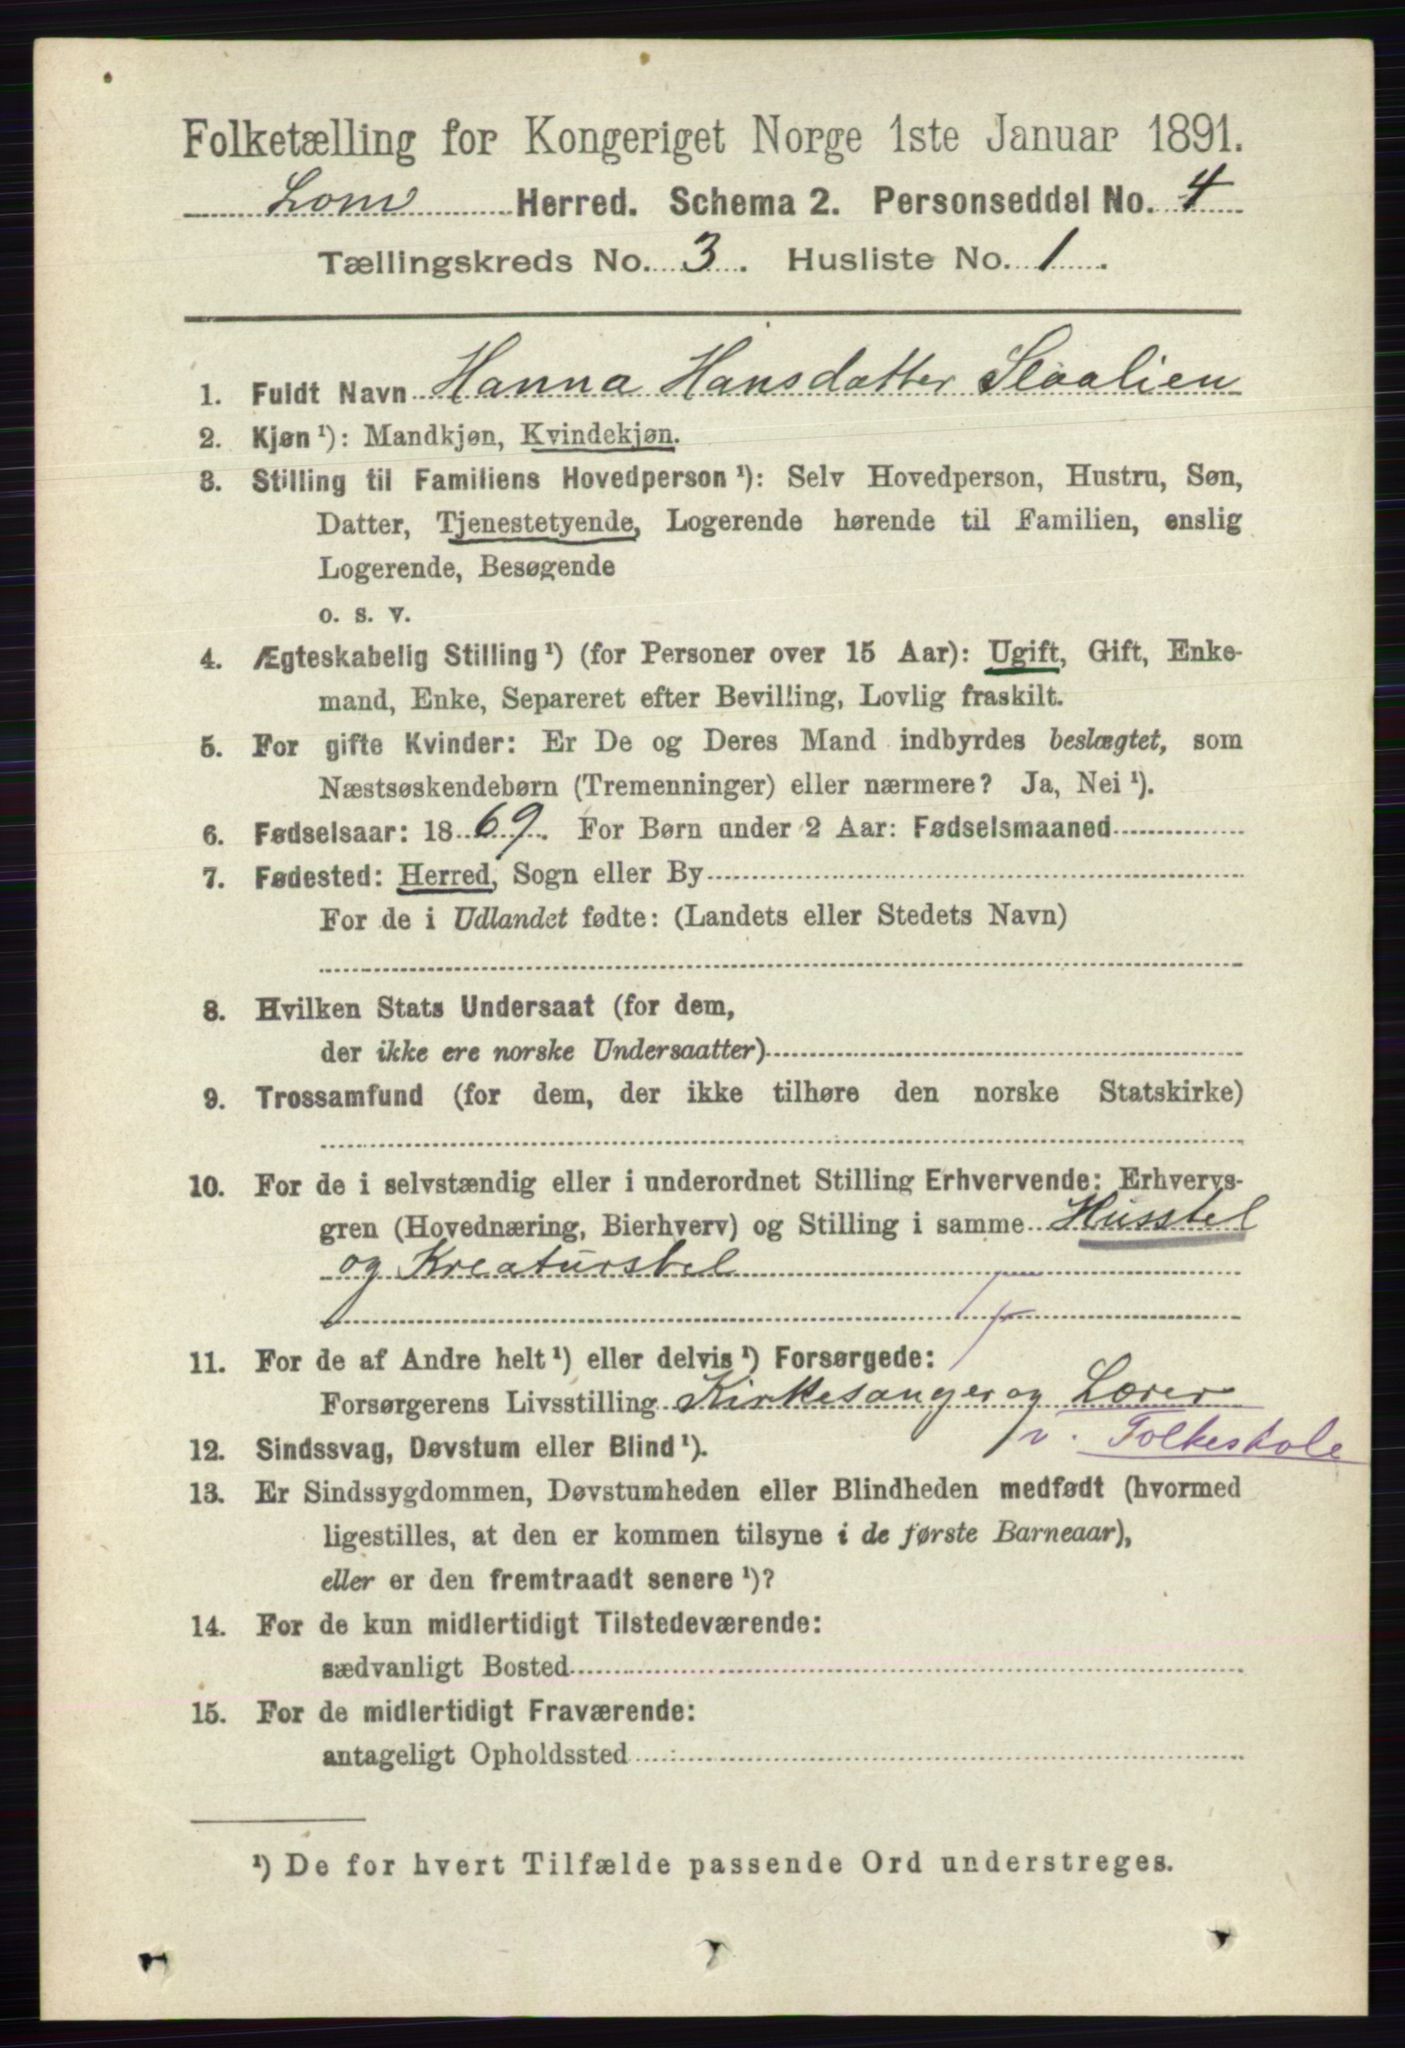 Folketælling for Kongeriget Norge 1ste Januar 1891.
Lom Herred. Schema 2. Personseddel No. 4
Tællingskreds No. 3. Husliste No. 1.
1. Fuldt Navn Hanna Hansdatter Slaalien
2. Kjøn ¹): Mandkjøn, Kvindekjøn.
3. Stilling til Familiens Hovedperson ¹): Selv Hovedperson, Hustru, Søn,
Datter, Tjenestetyende, Logerende hørende til Familien, enslig
Logerende, Besøgende
o. s. v.
4. Ægteskabelig Stilling ¹) (for Personer over 15 Aar): Ugift, Gift, Enke-
mand, Enke, Separeret efter Bevilling, Lovlig fraskilt.
5. For gifte Kvinder: Er De og Deres Mand indbyrdes beslægtet, som
Næstsøskendebørn (Tremenninger) eller nærmere? Ja, Nei ¹).
6. Fødselsaar: 1869. For Børn under 2 Aar: Fødselsmaaned
7. Fødested: Herred, Sogn eller By
For de i Udlandet fødte: (Landets eller Stedets Navn)
8. Hvilken Stats Undersaat (for dem,
der ikke ere norske Undersaatter)
9. Trossamfund (for dem, der ikke tilhøre den norske Statskirke)
10. For de i selvstændig eller i underordnet Stilling Erhvervende: Erhvervs-
gren (Hovednæring, Bierhverv) og Stilling i samme Husstel
og Kreaturstel
11. For de af Andre helt ¹) eller delvis ¹) Forsørgede:
Forsørgerens Livsstilling Kirkesanger og Lærer
v. Folkeskole
12. Sindssvag, Døvstum eller Blind ¹).
13. Er Sindssygdommen, Døvstumheden eller Blindheden medfødt (hvormed
ligestilles, at den er kommen tilsyne i de første Barneaar),
eller er den fremtraadt senere ¹)?
14. For de kun midlertidigt Tilstedeværende:
sædvanligt Bosted
15. For de midlertidigt Fraværende:
antageligt Opholdssted
¹) De for hvert Tilfælde passende Ord understreges.